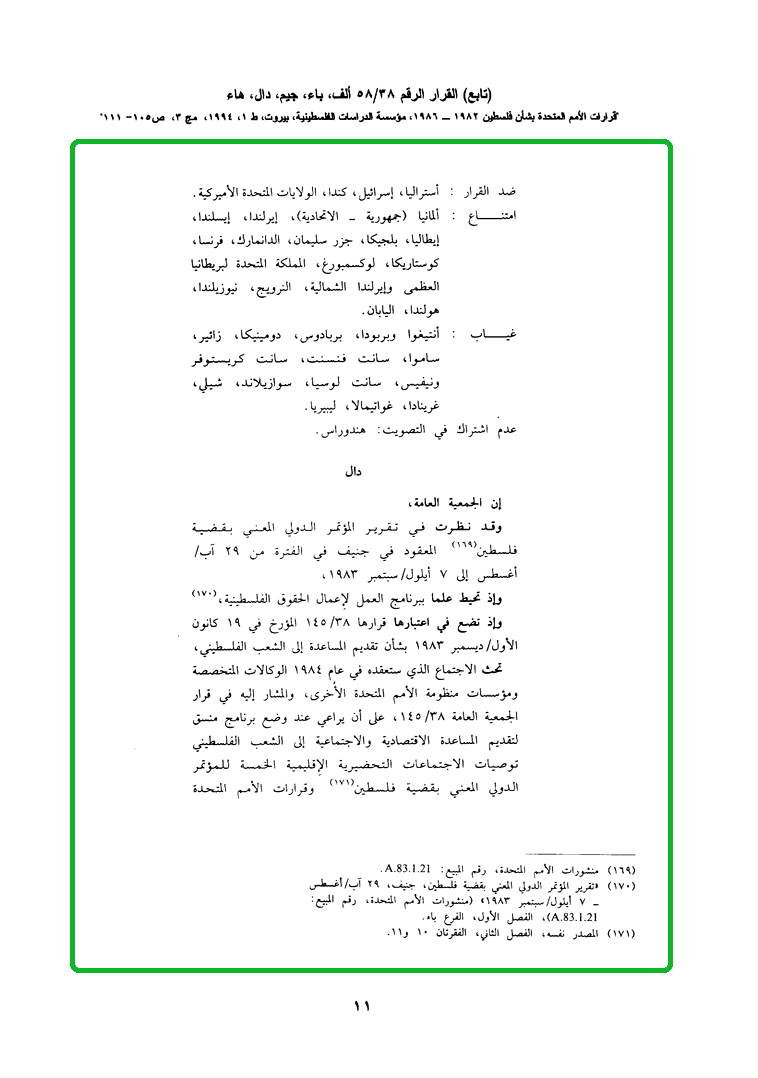 (تابع) القرار الرقم ٥٨/٣٨ ألف، باء، جيم، دال، هاء
"قرارات الأمم المتحدة بشأن فلسطين ١٩٨٢ ــ ١٩٨٦، مؤسسة الدراسات الفلسطينية، بيروت، ط ١، ١٩٩٤، مج ٣، ص١٠٥- ١١١"
ضد القرار : أستراليا، إسرائيل، كندا، الولايات المتحدة الأميركية.
امتنـــــاع : ألمانيا (جمهورية ــ الاتحادية)، إيرلندا، إيسلندا،
إيطاليا، بلجيكا، جزر سليمان، الدانمارك، فرنسا،
كوستاريكا، لوكسمبورغ، المملكة المتحدة لبريطانيا
العظمى وإيرلندا الشمالية، النرويج، نيوزيلندا،
هولندا، اليابان.
غيـــــاب : أنتيغوا وبربودا، بربادوس، دومينيكا، زائير،
ساموا، سانت فنسنت، سانت كريستوفر
ونيفيس، سانت لوسيا، سوازيلاند، شيلي،
غرينادا، غواتيمالا، ليبيريا.
عدم اشتراك في التصويت: هندوراس.
دال
إن الجمعية العامة،
وقد نظرت في تقرير المؤتمر الدولي المعني بقضية
فلسطين(١٦٩) المعقود في جنيف في الفترة من ٢٩ آب/
أغسطس إلى ٧ أيلول/سبتمبر ١٩٨٣،
وإذ تحيط علما ببرنامج العمل لإعمال الحقوق الفلسطينية،(١٧٠)
وإذ تضع في اعتبارها قرارها ١٤٥/٣٨ المؤرخ في ١٩ كانون
الأول/ديسمبر ١٩٨٣ بشأن تقديم المساعدة إلى الشعب الفلسطيني،
تحث الاجتماع الذي ستعقده في عام ١٩٨٤ الوكالات المتخصصة
ومؤسسات منظومة الأمم المتحدة الأخرى، والمشار إليه في قرار
الجمعية العامة ١٤٥/٣٨، على أن يراعي عند وضع برنامج منسق
لتقديم المساعدة الاقتصادية والاجتماعية إلى الشعب الفلسطيني
توصيات الاجتماعات التحضيرية الإقليمية الخمسة للمؤتمر
الدولي المعني بقضية فلسطين(١٧١) وقرارات الأمم المتحدة
(١٦٩) منشورات الأمم المتحدة، رقم المبيع: A.83.1.21.
(١٧٠) «تقرير المؤتمر الدولي المعني بقضية فلسطين، جنيف، ٢٩ آب/أغسطس
ــ ٧ أيلول/سبتمبر ١٩٨٣» (منشورات الأمم المتحدة، رقم المبيع:
A.83.1.21)، الفصل الأول، الفرع باء.
(١٧١) المصدر نفسه، الفصل الثاني، الفقرتان ١٠ و١١.
١١